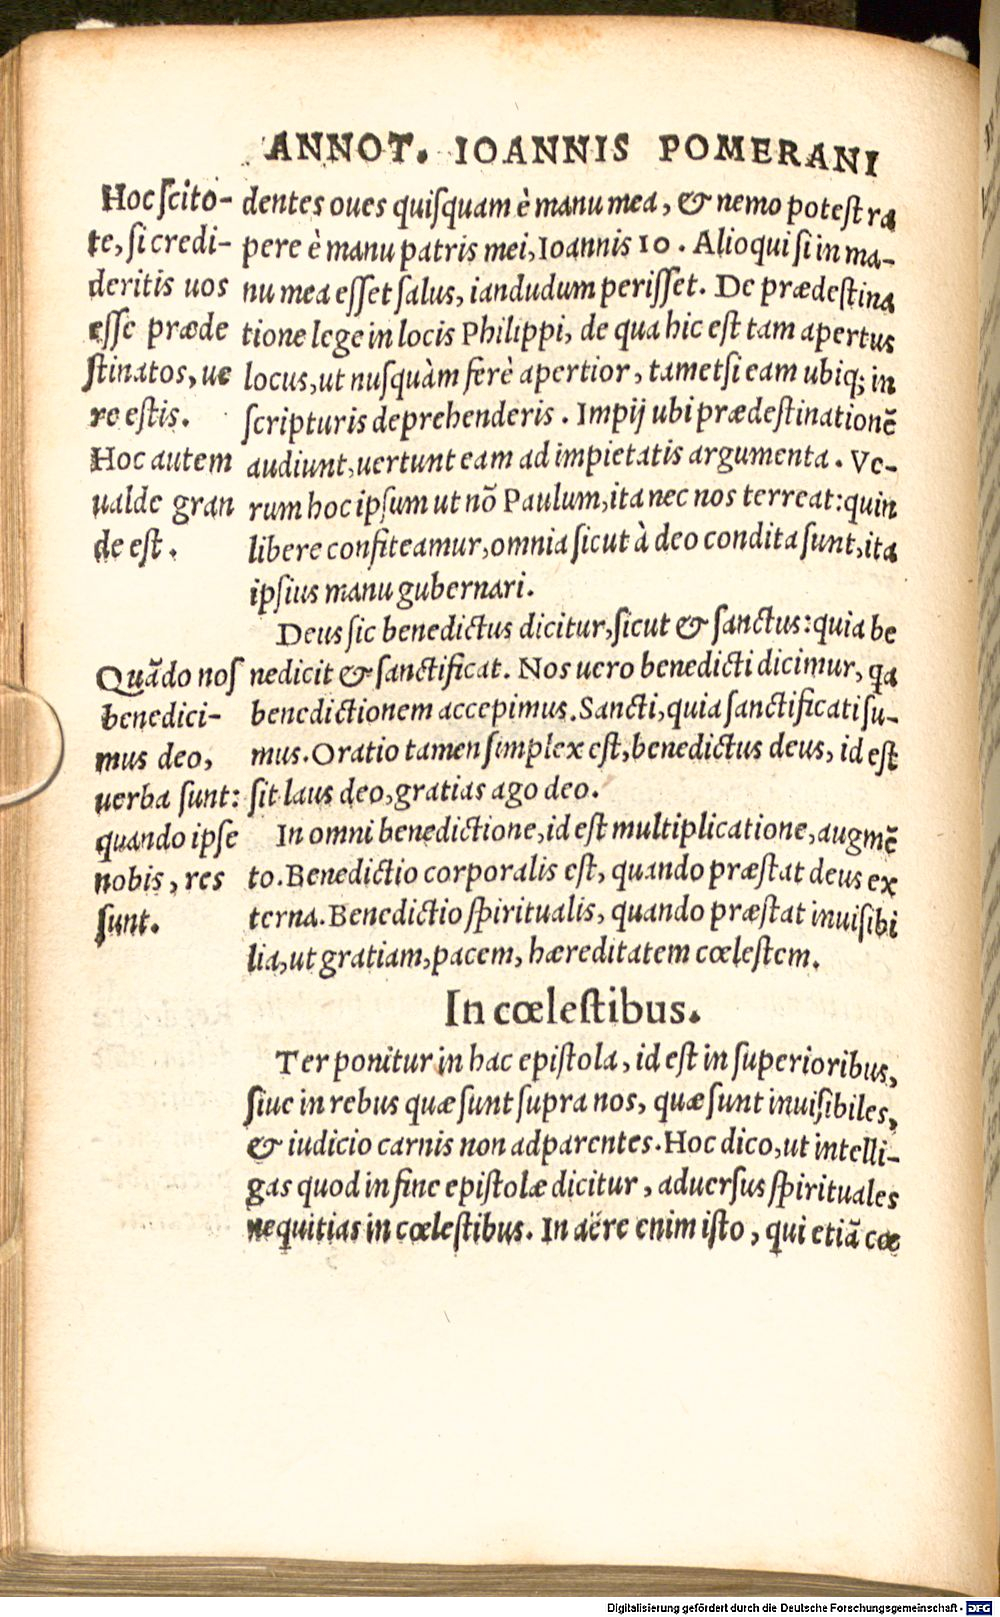 ANNOT. IOANNIS POMERANI
Hoc ſcito-
te, ſi credi-
deritis uos
eſſe præde
ſtinatos, ue
re eſtis.
Hoc autem
ualde gran
de eſt.
dentes oues quiſquam è manu mea, & nemo poteſt ra
pere è manu patris mei, Ioannis 10. Alioqui ſi in ma-
nu mea eſſet ſalus, iandudum periſſet. De prædeſtina
tione lege in locis Philippi, de qua hic eſt tam apertus
locus, ut nuſquàm ferè apertior, tametſi eam ubiq; in
ſcripturis deprehenderis. Impij ubi prædeſtinationē
audiunt, uertunt eam ad impietatis argumenta. Ve-
rum hoc ipſum ut nō Paulum, ita nec nos terreat: quin
libere confiteamur, omnia ſicut à deo condita ſunt, ita
ipſius manu gubernari.
Quādo noſ
benedici-
mus deo,
uerba ſunt:
quando ipſe
nobis, res
ſunt.
Deus ſic benedictus dicitur, ſicut & ſanctus: quia be
nedicit & ſanctificat. Nos uero benedicti dicimur, qa
benedictionem accepimus. Sancti, quia ſanctificati ſu-
mus. Oratio tamen ſimplex eſt, benedictus deus, id eſt
ſit laus deo, gratias ago deo.
In omni benedictione, id eſt multiplicatione, augmē
to. Benedictio corporalis eſt, quando præſtat deus ex
terna. Benedictio ſpiritualis, quando præſtat inuiſibi
lia, ut gratiam, pacem, hæreditatem cœleſtem.
In cœleſtibus.
Ter ponitur in hac epiſtola, id eſt in ſuperioribus,
ſiue in rebus quæ ſunt ſupra nos, quæ ſunt inuiſibiles,
& iudicio carnis non adparentes. Hoc dico, ut intelli-
gas quod in fine epiſtolæ dicitur, aduerſus ſpirituales
nequitias in cœleſtibus. In aëre enim iſto, qui etiā cœ
Digitalisierung gefördert durch die Deutsche Forschungsgemeinschaft - DFG